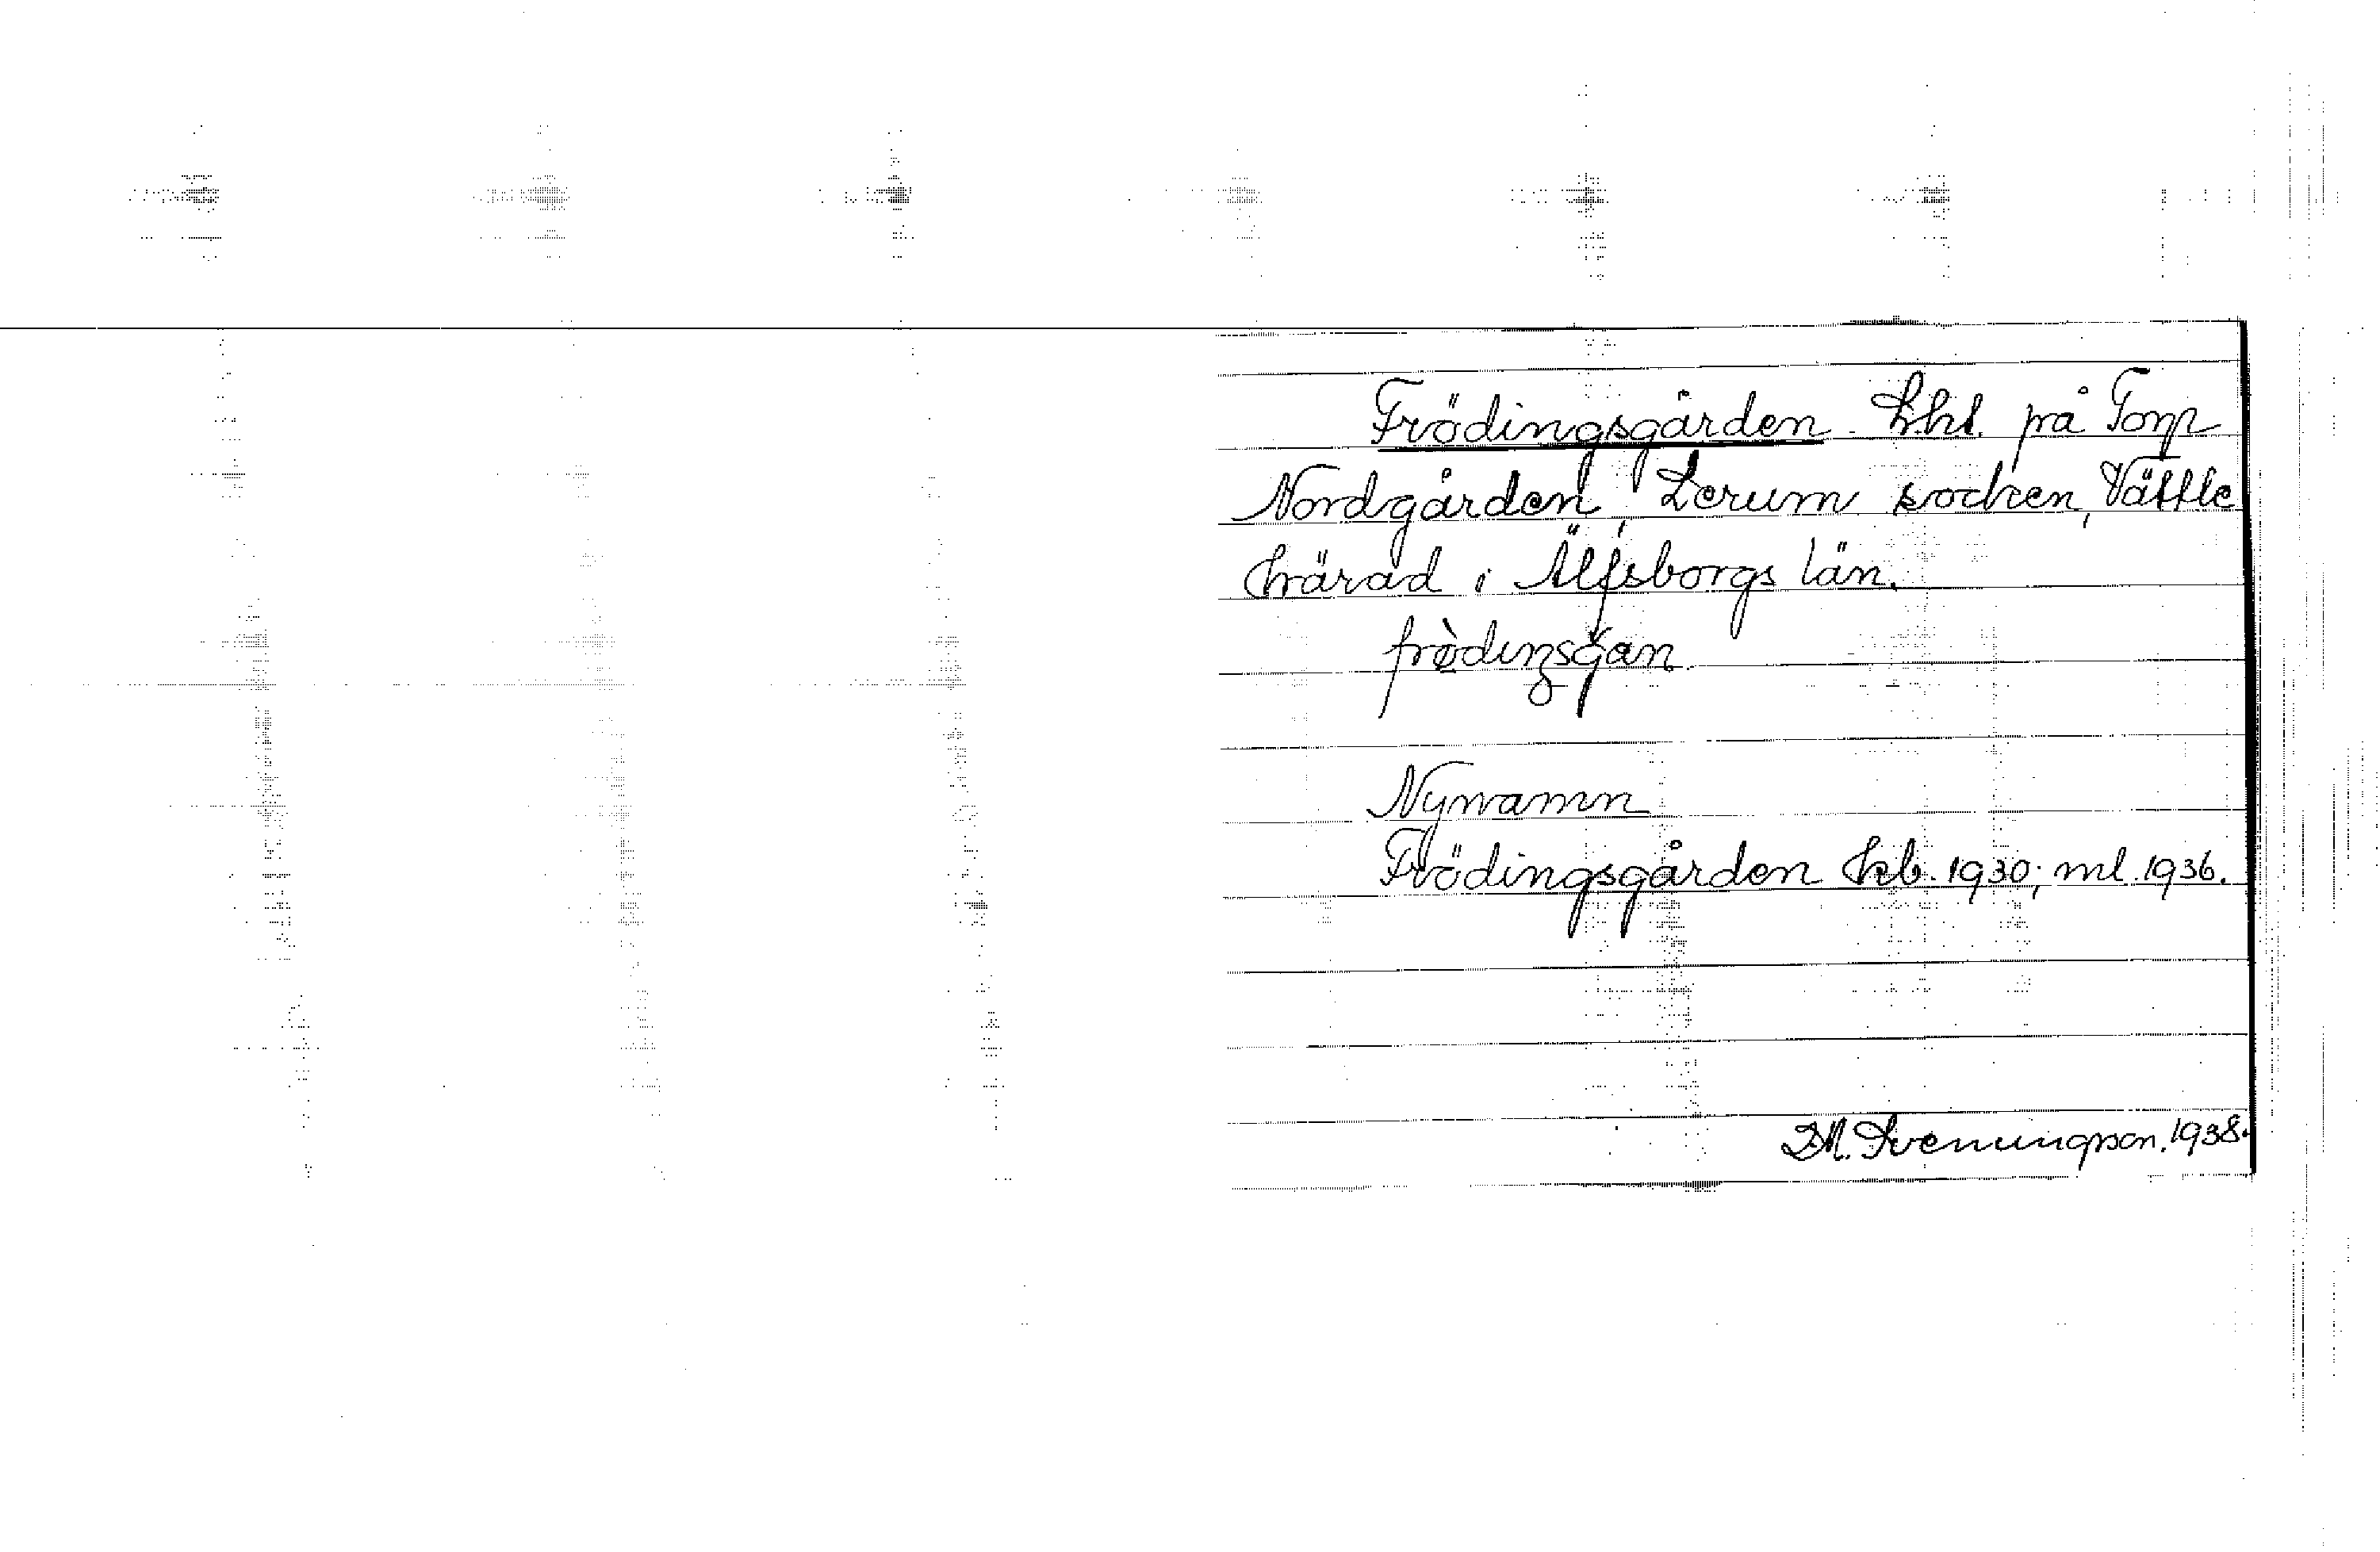 Frödingsgården. Lht. på Torp
Nordgården, Lerum socken, Vättle
härad i Älfsborgs län.
frødıŋsgan
Nynamn
Frödingsgården kb. 1930; ml. 1936.
D.M. Svenungson. 1938.